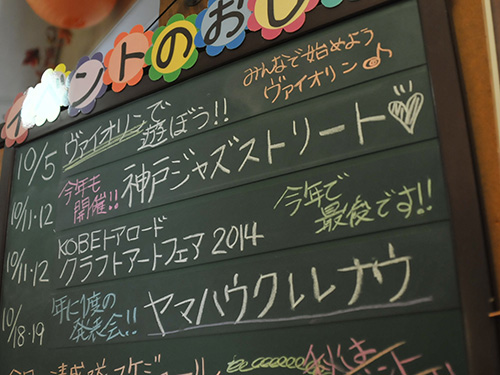 イ ントのおし
みんなで始めよう
ヴァイオリン♪
10/5 ヴァイオリンで
遊ぼう!!
10/11・12 今年も
開催!! 神戸ジャズストリート♡
10/11・12 KOBEトアロード
クラフトアートフェア 2014
今年で
最後です!!
10/18・19 年に1度の
発表会!! ヤマハウクレレナウ